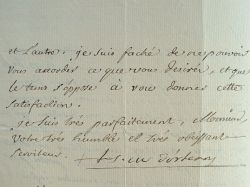 et l'autre. je suis faché de ne pouvoir
vous accorder ce que vous désirés, et que
le tems s'oppose à vous donner cette
satisfaction.
je suis très parfaitement, Monsieur
votre très humble et très obéissant
serviteur.